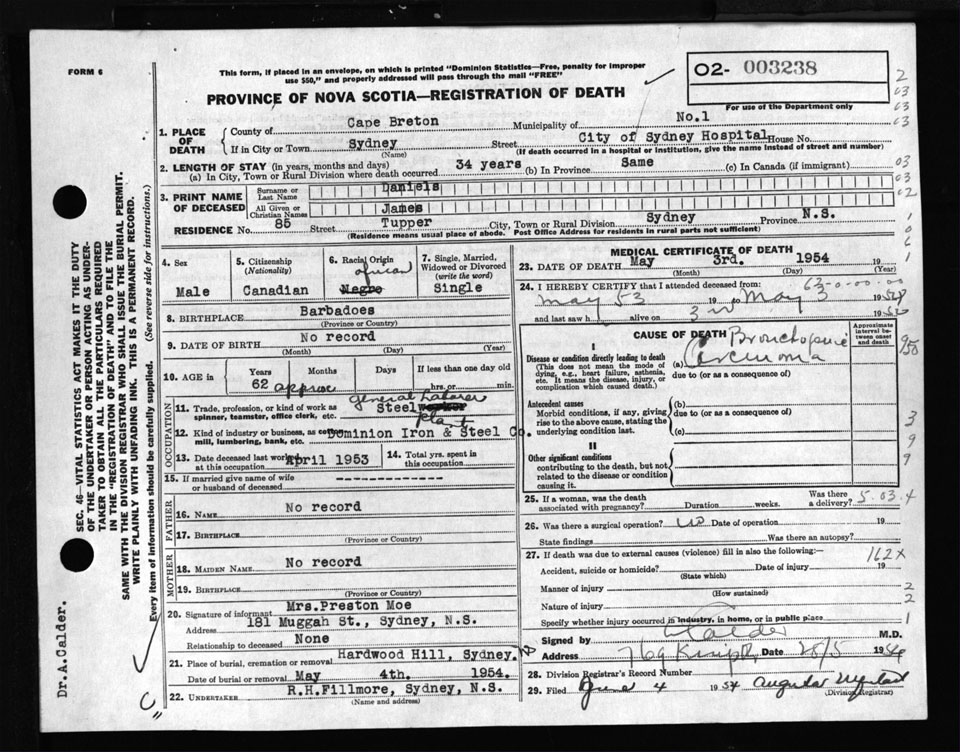 FORM 6
This form, if placed in an envelope, on which is printed "Dominion Statistics—Free, penalty for improper
use $50," and properly addressed will pass through the mail "FREE"
PROVINCE OF NOVA SCOTIA—REGISTRATION OF DEATH
02- 003238
For use of the Department only
1. PLACE OF DEATH
County of Cape Breton Municipality of No.1
If in City or Town Sydney Street City of Sydney Hospital House No.
(Name) (If death occurred in a hospital or institution, give the name instead of street and number)
2. LENGTH OF STAY (in years, months and days)
(a) In City, Town or Rural Division where death occurred 34 years (b) In Province Same (c) In Canada (if immigrant)
3. PRINT NAME OF DECEASED
Surname or Last Name Daniels
All Given or Christian Names James
RESIDENCE No. 85 Street Tupper City, Town or Rural Division Sydney Province N.S.
(Residence means usual place of abode. Post Office Address for residents in rural parts not sufficient)
4. Sex
Male
5. Citizenship
(Nationality)
Canadian
6. Racial Origin
African
Negro
7. Single, Married, Widowed or Divorced
(write the word)
Single
8. BIRTHPLACE Barbadoes
(Province or Country)
9. DATE OF BIRTH No record
(Month) (Day) (Year)
10. AGE in Years Months Days If less than one day old
62 approx hrs. or min.
OCCUPATION
general Laborer
11. Trade, profession, or kind of work as Steelworker
spinner, teamster, office clerk, etc.
Plant
12. Kind of industry or business, as cotton Dominion Iron & Steel Co.
mill, lumbering, bank, etc.
13. Date deceased last worked at this occupation April 1953
14. Total yrs. spent in this occupation
15. If married give name of wife or husband of deceased --------------
FATHER
16. NAME No record
17. BIRTHPLACE
(Province or Country)
MOTHER
18. MAIDEN NAME No record
19. BIRTHPLACE
(Province or Country)
20. Signature of informant Mrs.Preston Moe
Address 181 Muggah St., Sydney, N.S.
Relationship to deceased None
21. Place of burial, cremation or removal Hardwood Hill, Sydney.
Date of burial or removal May 4th. 1954.
22. UNDERTAKER R.H.Fillmore, Sydney, N.S.
(Name and address)
MEDICAL CERTIFICATE OF DEATH
23. DATE OF DEATH May 3rd. 1954 19
(Month) (Day) (Year)
24. I HEREBY CERTIFY that I attended deceased from: 63-0-00-00
May 53 19 to May 3 1954
and last saw h alive on 3 19
CAUSE OF DEATH
Approximate interval between onset and death
I
Disease or condition directly leading to death
(This does not mean the mode of dying, e.g., heart failure, asthenia, etc. It means the disease, injury, or complication which caused death.)
(a) Carcinoma
due to (or as a consequence of)
Antecedent causes
Morbid conditions, if any, giving rise to the above cause, stating the underlying condition last.
(b)
due to (or as a consequence of)
(c)
II
Other significant conditions
contributing to the death, but not related to the disease or condition causing it.
25. If a woman, was the death associated with pregnancy? Duration weeks. Was there a delivery? 5.03.4
26. Was there a surgical operation? Date of operation 19
State findings Was there an autopsy?
27. If death was due to external causes (violence) fill in also the following:— 162x
Accident, suicide or homicide? Date of injury 19
(State which)
Manner of injury
(How sustained)
Nature of injury
Specify whether injury occurred in industry, in home, or in public place
Signed by Calder M.D.
Address 769 Date 28/5 1954
28. Division Registrar's Record Number
29. Filed June 4 1954
(Division Registrar)
SEC. 46—VITAL STATISTICS ACT MAKES IT THE DUTY
OF THE UNDERTAKER OR PERSON ACTING AS UNDER-
TAKER TO OBTAIN ALL THE PARTICULARS REQUIRED
IN THE "REGISTRATION OF DEATH" AND TO FILE THE
SAME WITH THE DIVISION REGISTRAR WHO SHALL ISSUE THE BURIAL PERMIT.
WRITE PLAINLY WITH UNFADING INK. THIS IS A PERMANENT RECORD.
Every item of information should be carefully supplied. (See reverse side for instructions.)
Dr.A.Calder.